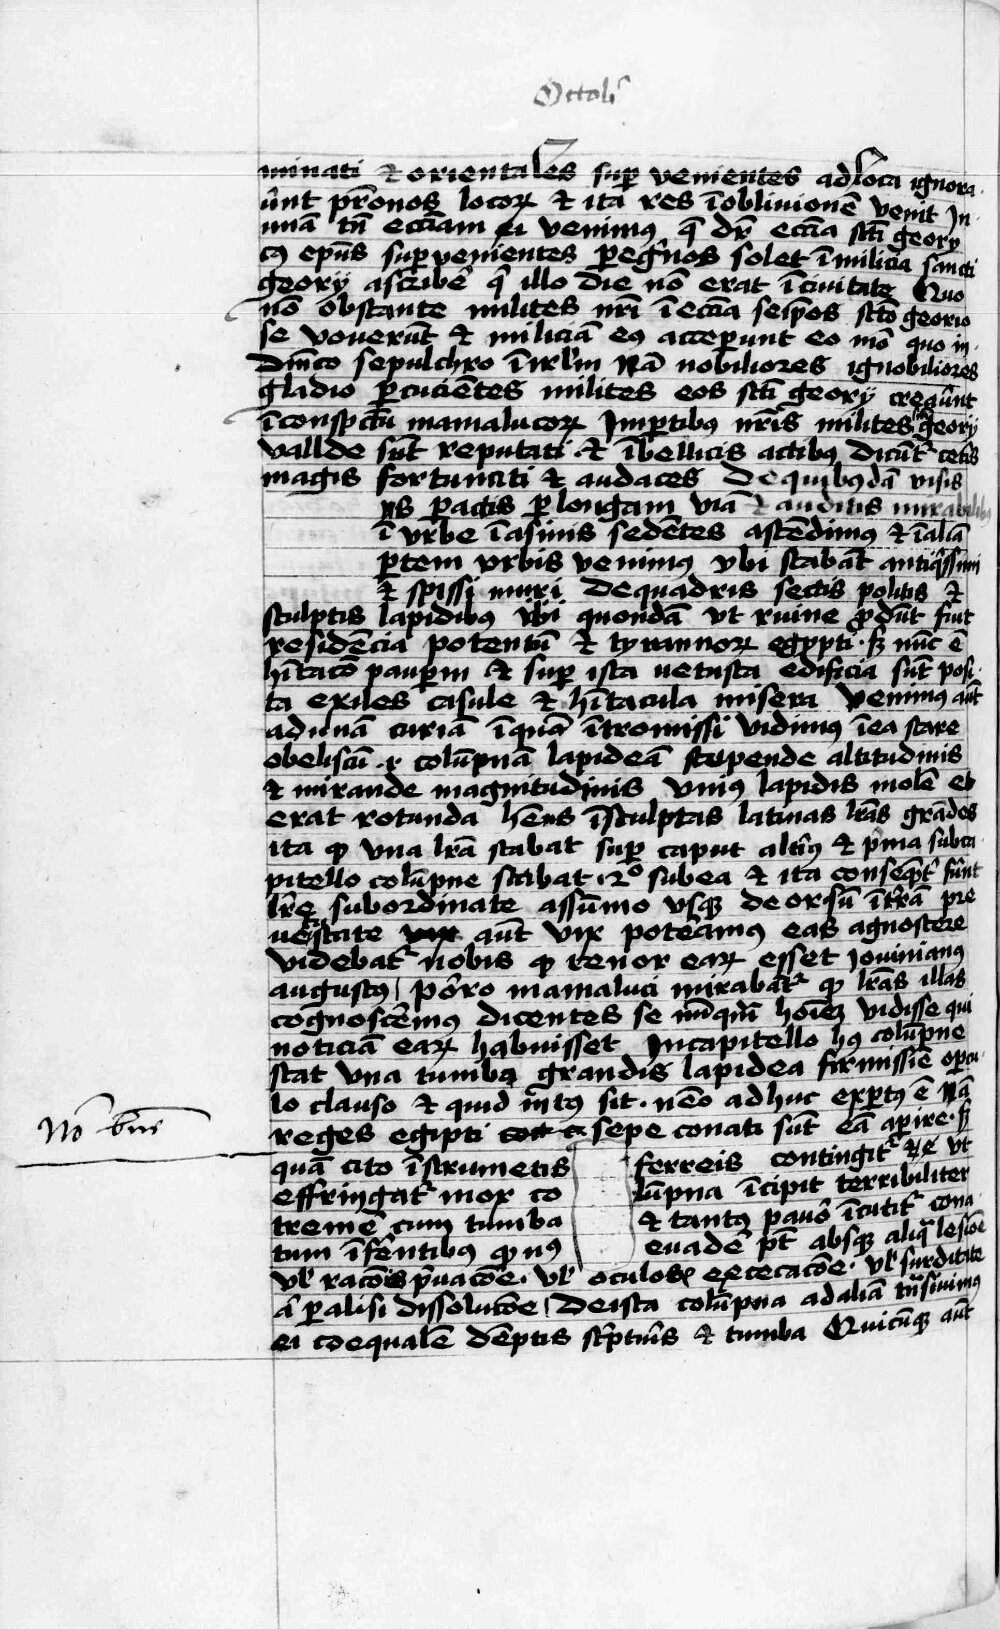 Octob'
minati et orientales sup venientes ad loca ignora
ūnt pr̄onos locoꝝ et ita res ī oblivionē venit In
unā tn̄ eccīam venimus q̄ dr̄ eccīa sctī georij
cuꝰ epūs supvenientes pegr̄nos solet ī milicia sancti
georij ascribē q̄ illo die nō erat ī civitate Quo
nō obstante milites nrī ī eccīa seipōs sctō georio
se voverūt et miliciā eꝰ acceperunt eo mō quo in
dn̄ico sepulchro ī irl̄m Nā nobiliores ignobiliores
gladio pcuciētes milites eos sctī georij creaūnt
ī conspctū mamalucoꝝ In ptibus nr̄is milites georij
vallde sūt reputati et ī bellicis actibus dicūt' cetīs
magis fortunati et audaces De quibusdā visis
ijs pactis p longam viā et auditis mirabilibus
ī urbe ī asinis sedētes ascēdimus et ī aliā
ptem urbis venimus ubi stabāt antiqissimi
et spissi muri de quadris sectis politis et
sculptis lapidibus ubi quondā ut ruine pdūt fiut
residēcia potentū et tyrannoꝝ egypti sꝫ nūc ē
hītacō paupm et sup ista vetusta edificia sūt posi
ta exiles casule et hītacula misera Venimus aūt
ad unā curiā ī quā ītromissi vidimus ī ea stare
obeliscū .i. colūpnā lapideā stupende altitudinis
et mirande magnitudinis unius lapidis molē et
erat rotunda hēns īsculptas latinas lrās grādes
ita qꝫ una lrā stabat sup caput altīus et pma sub ca
pitello colūpne stabat .2ᵒ sub ea et ita conseqntʳ fūnt
lrē subordinate a sūmo usqꝫ deorsū ī trā pre
vetustate aūt vix potēamus eas agnoscere
videbat' nobis qꝫ tenor eaꝝ esset Jovinianus
augustus Porro mamaluci mirabāt' qꝫ lrās illas
cognoscēmus dicentes se nūqm̄ hoīem vidisse qui
noticiā eaꝝ habuisset In capitello hꝰ colūpne
stat una tumba grandis lapidea firmissīe opcu
lo clauso et quid ītus sit nēo adhuc expertus ē Nā
reges egipti sepe conati sūt eā apire sꝫ
quā cito ī strumētis ferreis contingit' ut
effringat' mox colūpna īcipit terribiliter
tremē cum tumba et tantus pavor īcutit' cona
tum īferentibus qꝫ nꝰ evadē pt̄ absqꝫ aliq lesiōe
vl' racōis pvacōe vl' oculoꝝ excecacōe vl' surditate
a palisi dissolucōe De ista colūpna ad aliā tn̄sivimus
ei coequalē dēptis scptur̄is et tumba Quicūqꝫ aūt